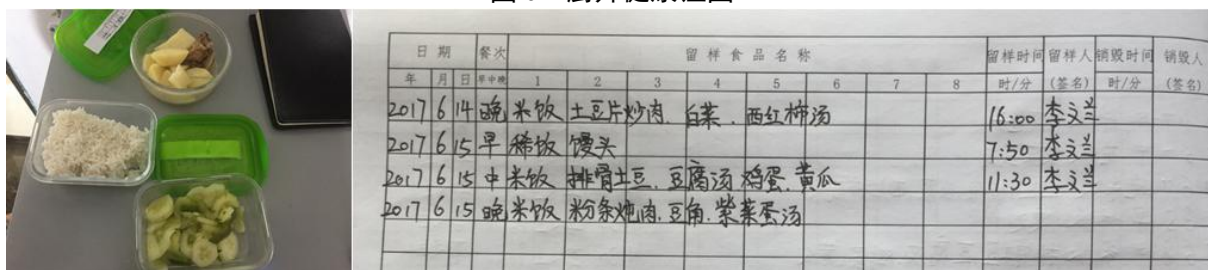 日 期 餐次 留 样 食 品 名 称 留样时间 留样人 销毁时间 销毁人
年 月 日 早中晚 1 2 3 4 5 6 7 8 时/分 (签名) 时/分 (签名)
2017 6 14 晚 米饭 土豆片炒肉. 白菜. 西红柿汤 16:00 李文兰
2017 6 15 早 稀饭 馒头 7:50 李文兰
2017 6 15 中 米饭 排骨土豆. 豆腐汤 鸡蛋. 黄瓜 11:30 李文兰
2017 6 15 晚 米饭 粉条炖肉. 豆角. 紫菜蛋汤